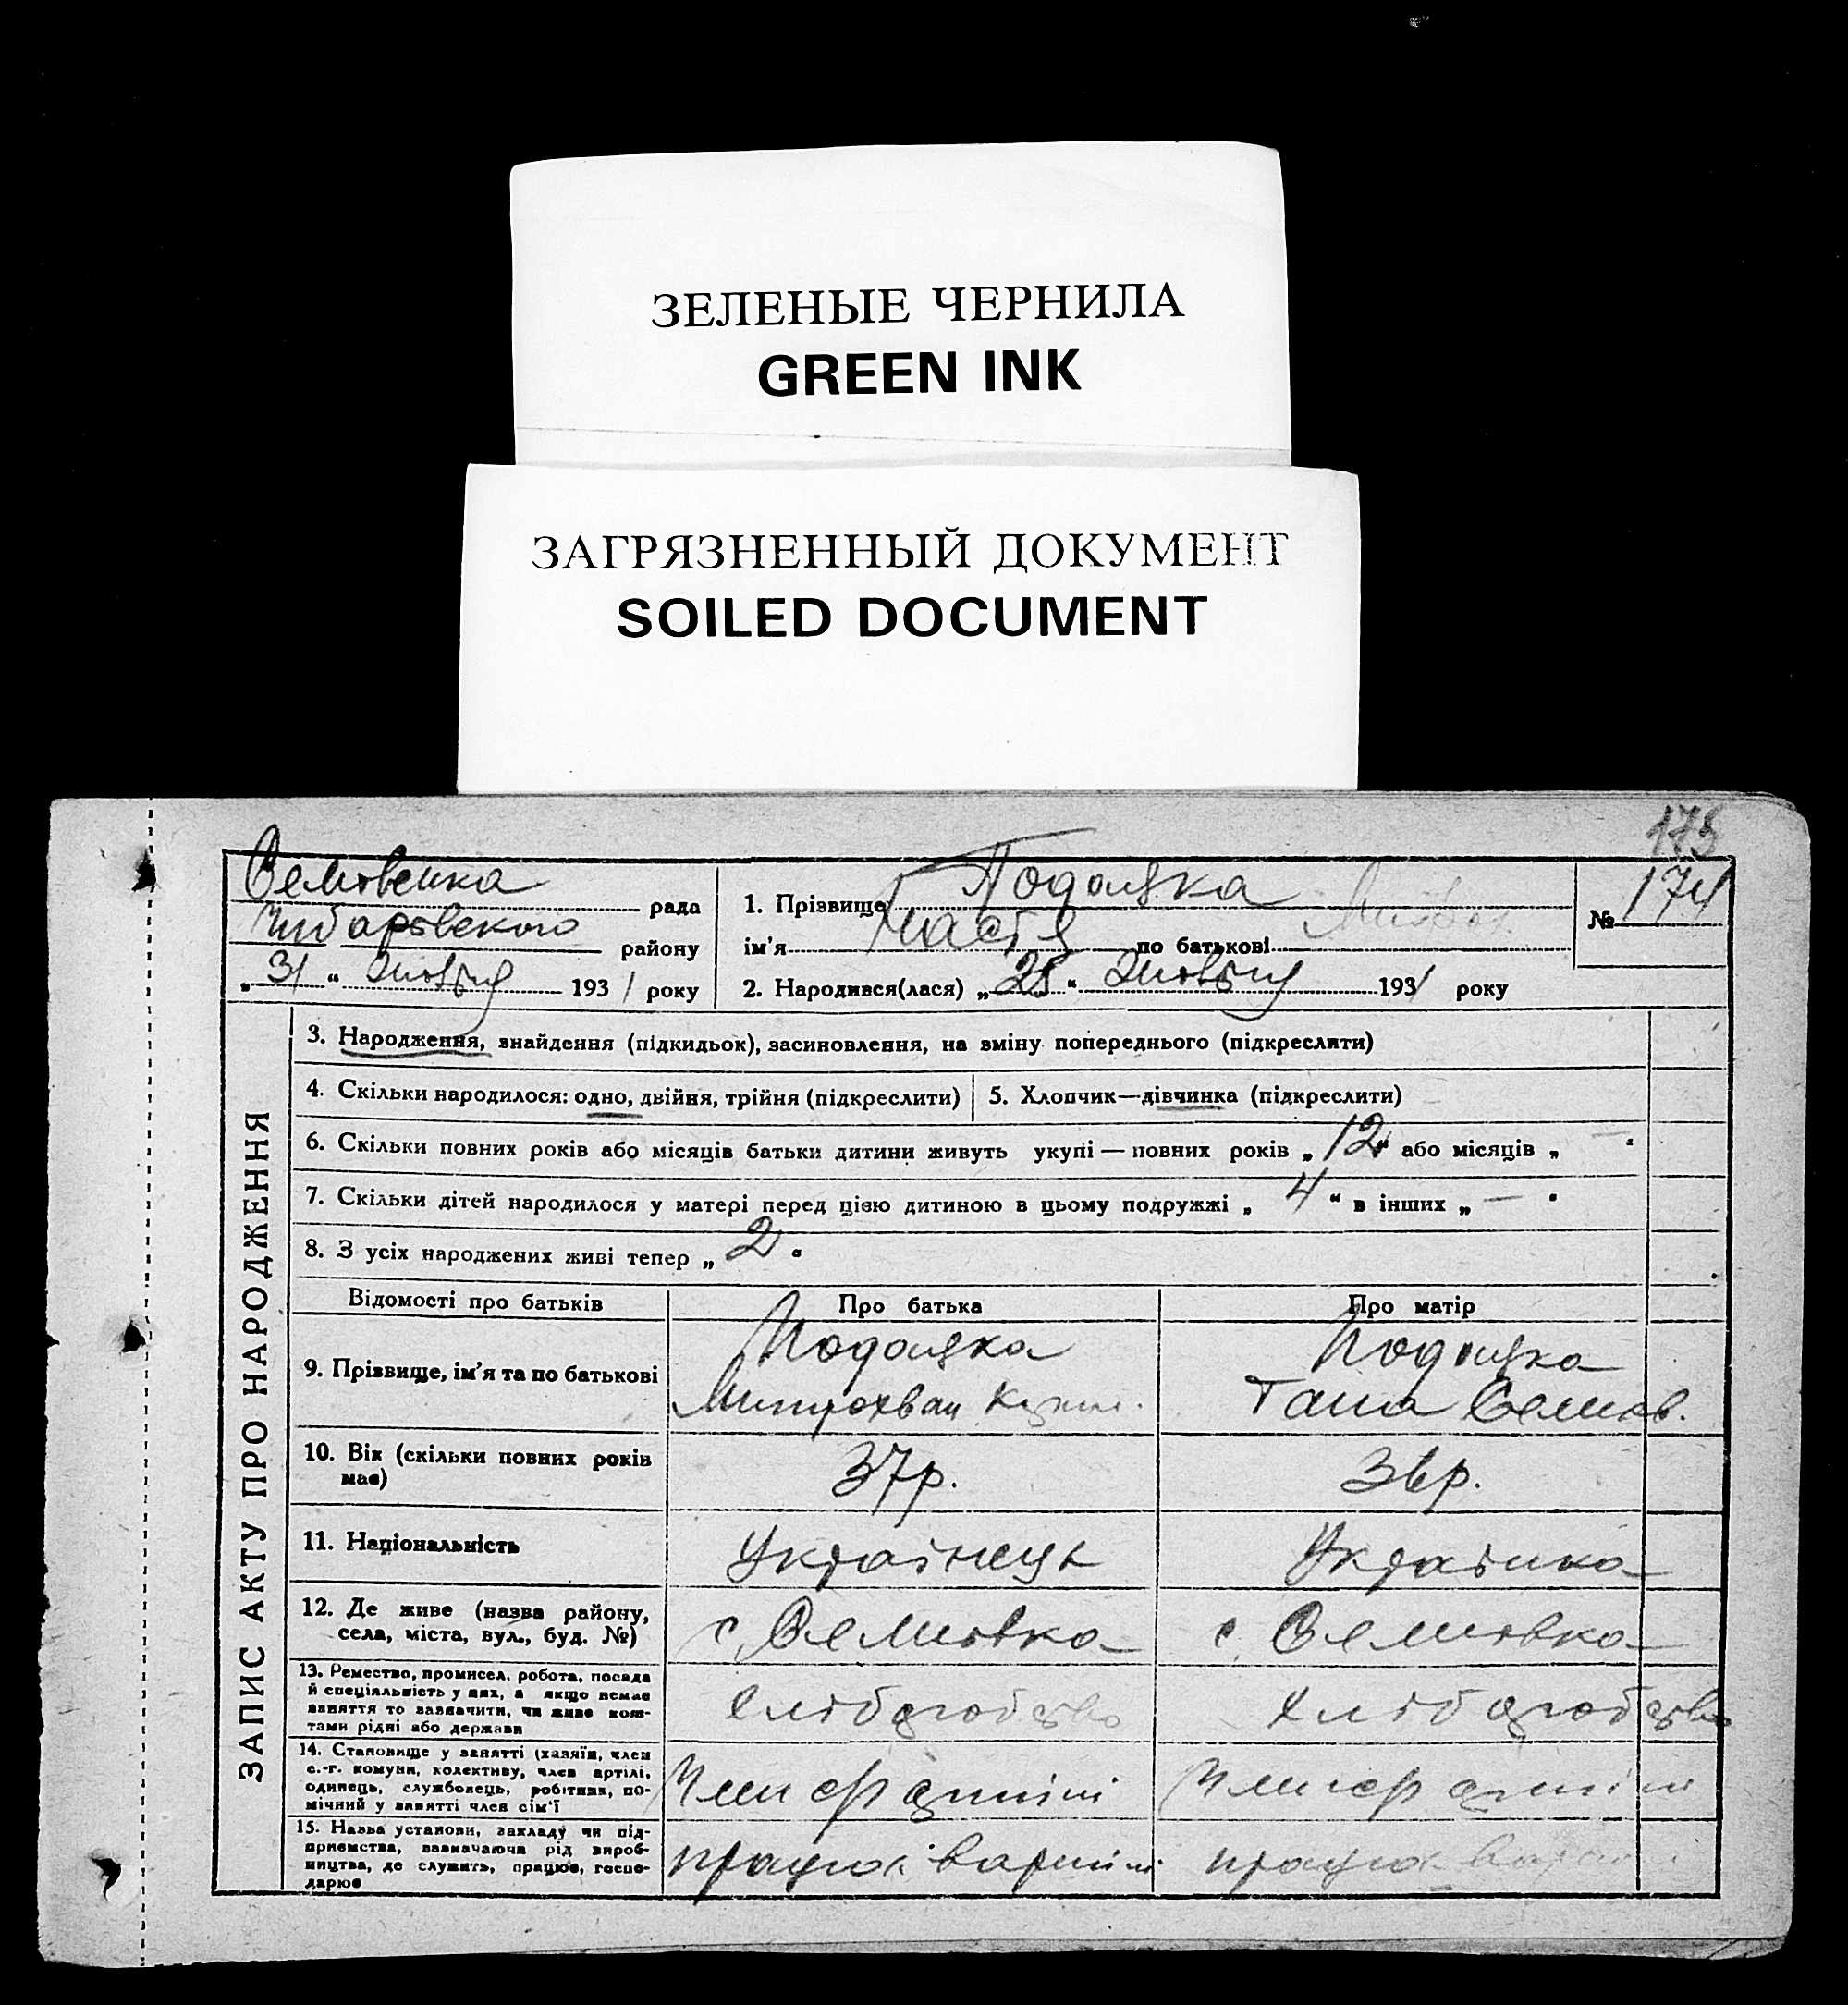 ЗЕЛЕНЫЕ ЧЕРНИЛА
GREEN INK
ЗАГРЯЗНЕННЫЙ ДОКУМЕНТ
SOILED DOCUMENT
175
рада
району
„31“ Жовтня 1931 року
1. Прізвище Подоляка
ім'я Настя по батькові
2. Народився(лася) „25“ Жовтня 1931 року
№ 174
ЗАПИС АКТУ ПРО НАРОДЖЕННЯ
3. Народження, знайдення (підкидьок), засиновлення, на зміну попереднього (підкреслити)
4. Скільки народилося: одно, двійня, трійня (підкреслити)
5. Хлопчик—дівчинка (підкреслити)
6. Скільки повних років або місяців батьки дитини живуть укупі — повних років „12“ або місяців „—“
7. Скільки дітей народилося у матері перед цією дитиною в цьому подружжі „4“ в інших „—“
8. З усіх народжених живі тепер „2“
Відомості про батьків Про батька Про матір
9. Прізвище, ім'я та по батькові
Подоляка Подоляка
Митрохван
10. Вік (скільки повних років має)
37р. 36р.
11. Національність
Українець Українка
12. Де живе (назва району, села, міста, вул., буд. №)
с. с.
13. Ремество, промисел, робота, посада й спеціяльність у них, а якщо немає заняття то зазначити, чи живе коштами рідні або держави
14. Становище у занятті (хазяїн, член с.-г. комуни, колективу, член артілі, одинець, службовець, робітник, помічний у занятті член сім'ї
15. Назва установи, закладу чи підприємства, зазначаюча рід виробництва, де служить, працює, господарює